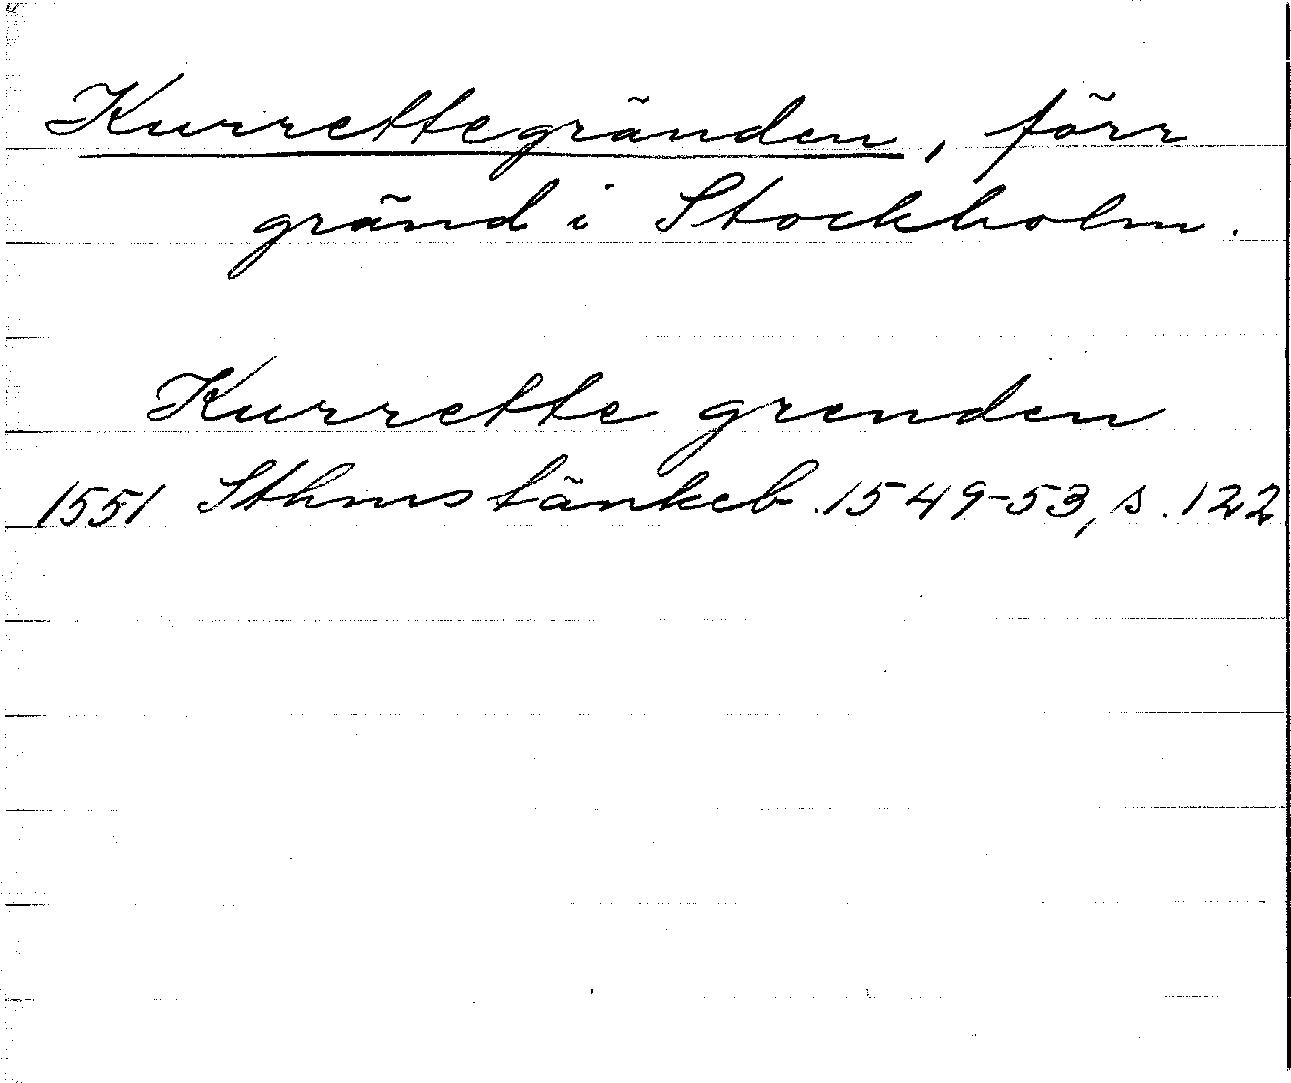 Kurrettegränden, förr
gränd i Stockholm.
Kurrette grenden
1551 Sthms tänkeb. 1549-53, s. 122